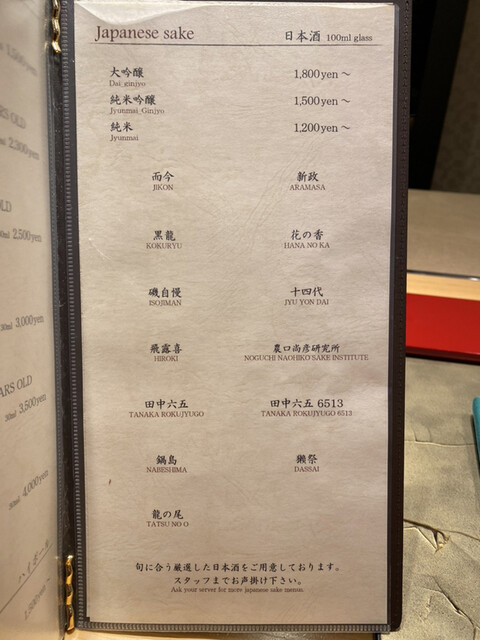 Japanese sake 日本酒 100ml glass
大吟醸 1,800yen～
Dai_ginjyo
純米吟醸 1,500yen～
Jyunmai_Ginjyo
純米 1,200yen～
Jyunmai
而今 新政
JIKON ARAMASA
黒龍 花の香
KOKURYU HANA NO KA
磯自慢 十四代
ISOJIMAN JYU YON DAI
飛露喜 農口尚彦研究所
HIROKI NOGUCHI NAOHIKO SAKE INSTITUTE
田中六五 田中六五 6513
TANAKA ROKUJYUGO TANAKA ROKUJYUGO 6513
鍋島 獺祭
NABESHIMA DASSAI
龍の尾
TATSU NO O
旬に合う厳選した日本酒をご用意しております。
スタッフまでお声掛け下さい。
Ask your server for more japanese sake menus.
1,500yen
ARS OLD
2,300yen
OLD
2,500yen
30ml 3,000yen
ARS OLD
30ml 3,500yen
30ml 4,000yen
ハイボール